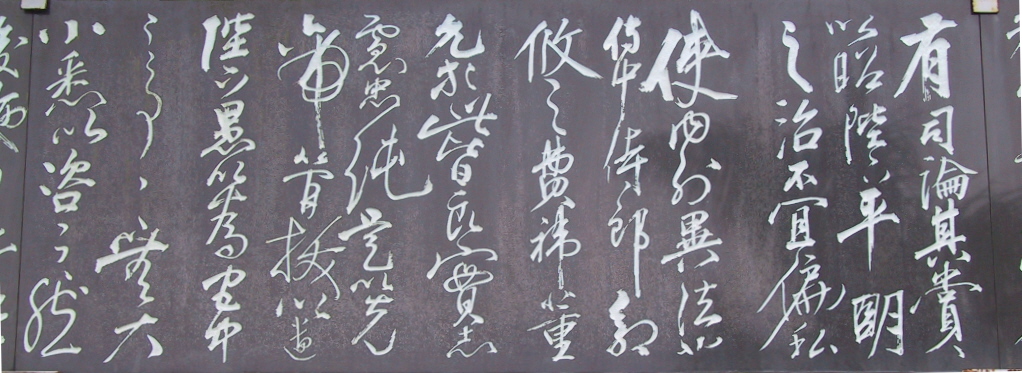 有司論其賞
以昭陛下平明
之治不宜偏私
使內外異法也
侍中侍郎郭
攸之費禕董
允等此皆良實志
慮忠純是以先
帝簡拔以遺
陛下愚以為宮中
之事事無大
小悉以咨之然